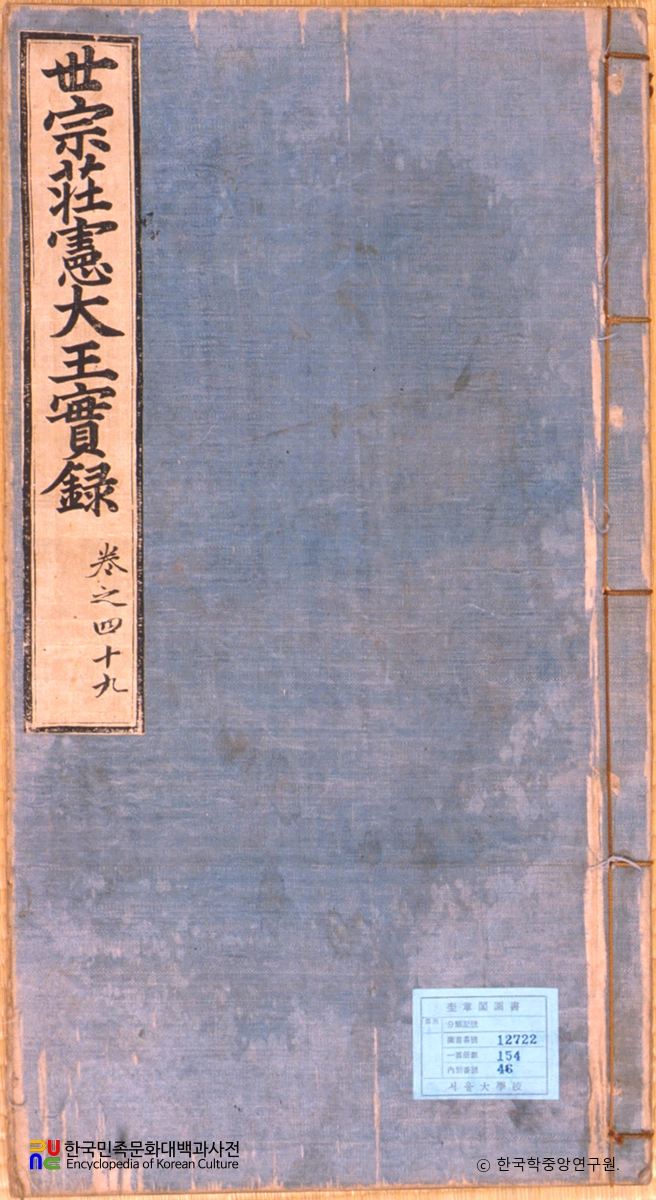 世宗莊憲大王實録
卷之四十九
奎章閣圖書
分類記號
圖書番號 12722
一部冊數 154
內別番號 46
서울大學校
한국민족문화대백과사전
Encyclopedia of Korean Culture
© 한국학중앙연구원.